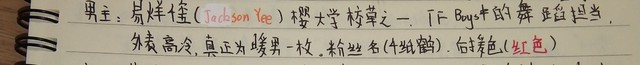 男主：易烊佳（Jackson Yee）樱大学校草之一. TF Boys中的舞蹈担当，
外表高冷，真正为暖男一枚。粉丝名（千纸鹤）. 应援色（红色）